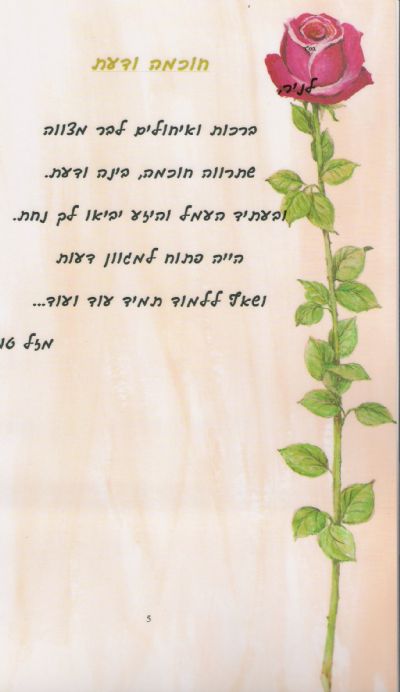 בס"ד
חוכמה ודעת
לניר,
ברכות ואיחולים לבר מצווה
שתרווה חוכמה, בינה ודעת.
ובעתיד העמל והיזע יביאו לך נחת.
הייה פתוח למגוון דעות
ושאף ללמוד תמיד עוד ועוד...
מזל טו
5